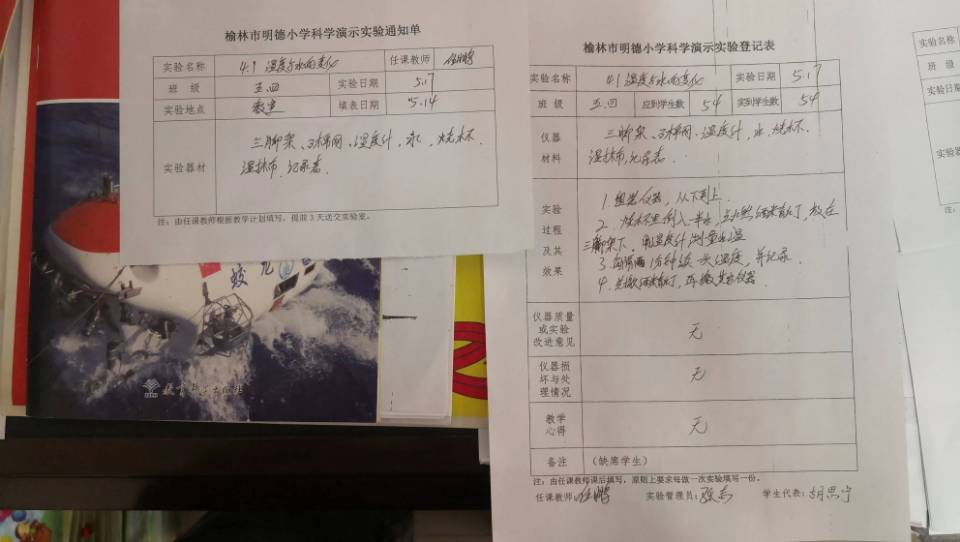 榆林市明德小学科学演示实验通知单
实验名称 4.1 温度与水的变化 任课教师 任鹏
班 级 五.四 实验日期 5.17
实验地点 教室 填表日期 5.14
实验器材 三脚架、石棉网、温度计、水、烧杯、
湿抹布、记录表.
注：由任课教师根据教学计划填写，提前3天送交实验室。
蛟龙
教育科学出版社
榆林市明德小学科学演示实验登记表
实验名称 4.1 温度与水的变化 实验日期 5.17
班 级 五.四 应到学生数 54 实到学生数 54
仪器材料 三脚架、石棉网、温度计、水、烧杯、
湿抹布、记录表.
实验过程及其效果 1. 组装仪器，从下到上.
2. 烧杯里倒入一半水，点燃酒精灯，放在
三脚架下，用温度计测量水温
3. 每隔两分钟 一次温度，并记录.
4. 酒精灯，再 仪器.
仪器质量或实验改进意见 无
仪器损坏与处理情况 无
教学心得 无
备注 （缺席学生）
注：由任课教师课后填写，原则上要求每做一次实验填写一份。
任课教师：任鹏 实验管理员： 学生代表：胡思宁
实验名称
班 级
实验日期